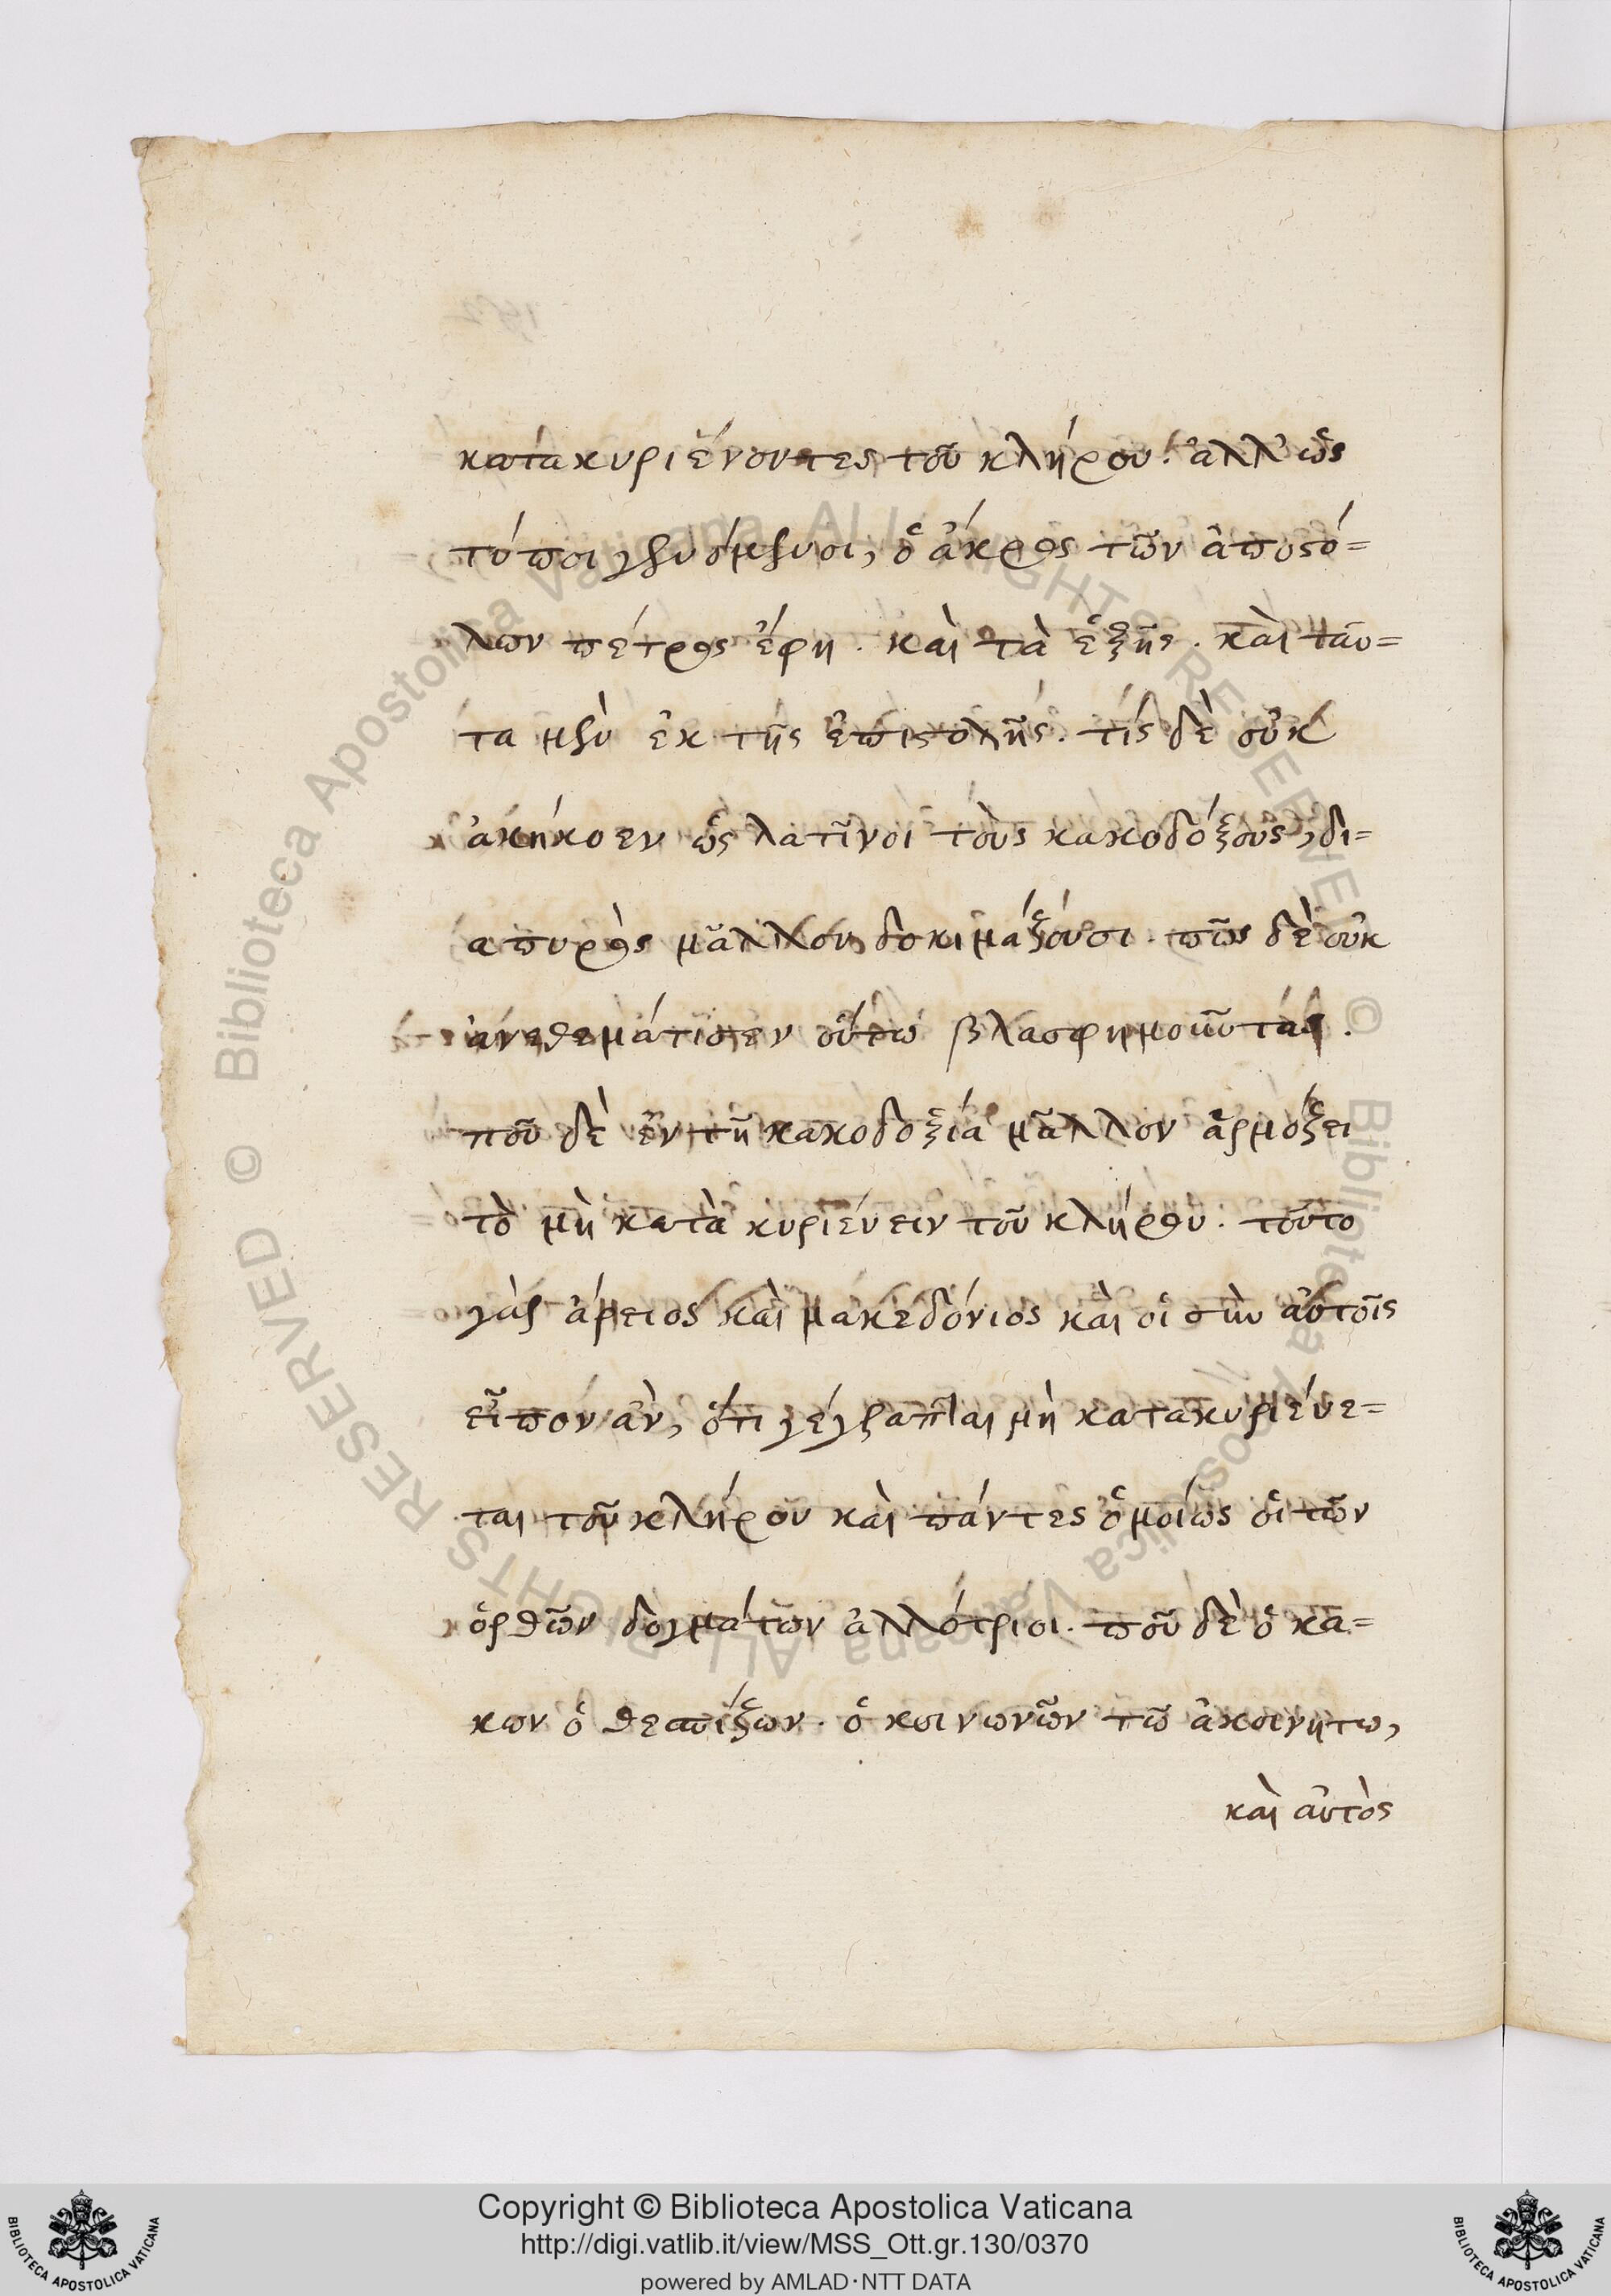 κατακυριεύοντες τοῦ κλήρου. ἀλλ' ὡς
τύποι γενόμενοι, ὁ ἄκρος τῶν ἀποστό=
λων πέτρος ἔφη. καὶ τὰ ἑξῆς. καὶ ταῦ=
τα μὲν ἐκ τῆς ἐπιστολῆς. τίς δὲ οὐκ
ἀκήκοεν ὡς λατῖνοι τοὺς κακοδόξους, δι=
α πυρὸς μᾶλλον δοκιμάζουσι. πῶς δὲ οὐκ
ἀνεθεμάτισεν οὕτω βλασφημοῦντας.
ποῦ δὲ ἐν τῆ κακοδοξία μᾶλλον ἁρμόζει
τὸ μὴ κατὰ κυριεύειν τοῦ κλήρου. τοῦτο
γὰρ ἄρειος καὶ μακεδόνιος καὶ οἱ σὺν αὐτοῖς
εἶπον ἂν, ὅτι γέγραπται μὴ κατακυριεύε=
ται τοῦ κλήρου καὶ πάντες ὁμοίως οἱ τῶν
ὀρθῶν δογμάτων ἀλλότριοι. ποῦ δὲ ὁ κα=
κων ὁ θεσπίζων. ὁ κοινωνῶν τῶ ἀκοινήτω,
καὶ αὐτὸς
Copyright © Biblioteca Apostolica Vaticana
http://digi.vatlib.it/view/MSS_Ott.gr.130/0370
powered by AMLAD·NTT DATA
BIBLIOTECA APOSTOLICA VATICANA
BIBLIOTECA APOSTOLICA VATICANA
© Biblioteca Apostolica Vaticana ALL RIGHTS RESERVED
© Biblioteca Apostolica Vaticana ALL RIGHTS RESERVED